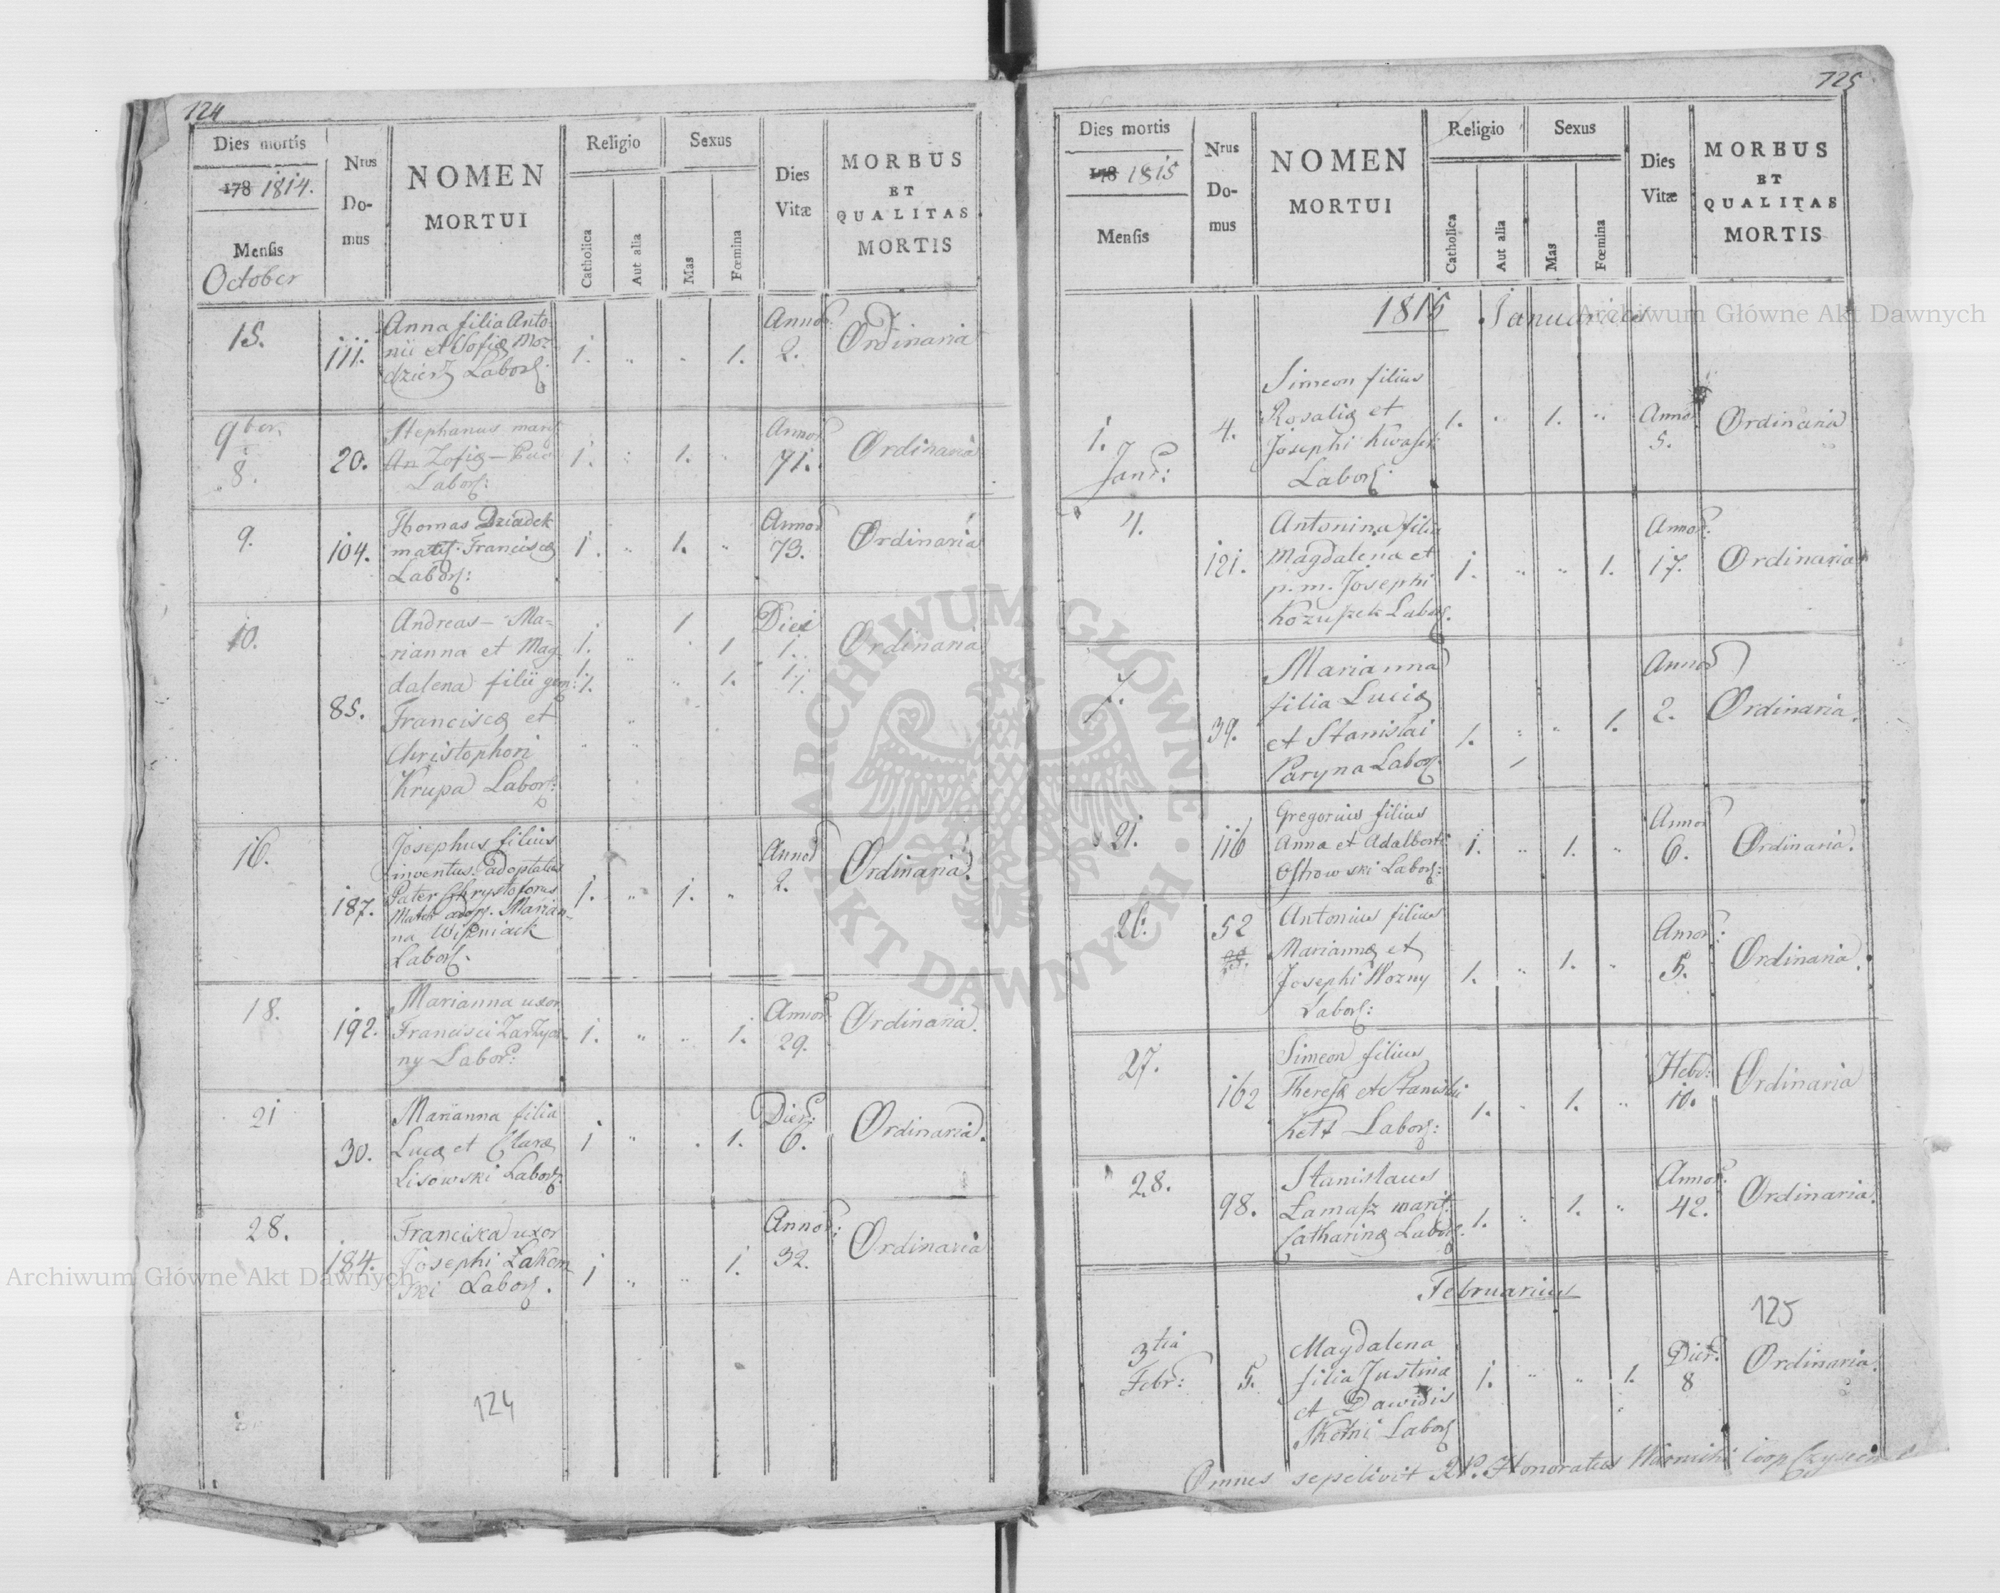 124
Dies mortis
178 1814.
Mensis
October
Nrus
Do-
mus
NOMEN
MORTUI
Religio
Catholica
Aut alia
Sexus
Mas
Fœmina
Dies
Vitæ
MORBUS
ET
QUALITAS
MORTIS
15.
111.
Anna filia Anto-
nii et Sofiæ
Labor:
1. " . 1.
Annor:
2.
Ordinaria
9ber.
8.
20.
Stephanus marit
Zofiæ —
Labor:
1. " 1. "
Annor
71.
Ordinaria
9.
104.
Thomas Dziadek
Franciscæ
Labor:
1. " 1. "
Annor
73.
Ordinaria
10.
85.
Andreas — Ma-
rianna et Mag
dalena filii gem:
Franciscæ et
Christophori
Krupa Labor:
1. 1
1. 1
1.
Diei
1.
1.
Ordinaria
16.
187.
Josephus filius
inventus adoptatus
Pater Chrystoforus
Mater adop. Marian-
na Wiśniack
Labor.
1. " 1. "
Annor
2.
Ordinaria.
18.
192.
Marianna uxor
Francisci
ny Labor:
1. " " 1.
Annor
29.
Ordinaria.
21
30.
Marianna filia
Lucæ et Claræ
Lisowski Labor:
1 " . 1.
Dier:
6.
Ordinaria.
28.
184.
Franciska uxor
Josephi
Labor.
1 " " 1.
Annor:
32.
Ordinaria
124
725
Dies mortis
178 1815
Mensis
Nrus
Do-
mus
NOMEN
MORTUI
Religio
Catholica
Aut alia
Sexus
Mas
Fœmina
Dies
Vitæ
MORBUS
ET
QUALITAS
MORTIS
1815 Januarius
1.
Janr:
4.
Simeon filius
Rosaliæ et
Josephi
Labor:
1. " 1. "
Annor
5.
Ordinaria
4.
121.
Antonina filia
Magdalena et
p. m. Josephi
Kożuszek Labor.
1. " " 1.
Annor:
17.
Ordinaria
7.
39.
Marianna
filia Luciæ
et Stanislai
Paryna Labor
1. " " 1.
Annor
2.
Ordinaria.
21.
116
Gregorius filius
Anna et Adalberti
Ostrowski Labor:
1. " 1. "
Annor
6.
Ordinaria.
26.
52
Antonius filius
Mariannæ et
Josephi Wozny
Labor:
1. " 1. "
Annor:
5.
Ordinaria.
27.
162
Simeon filius
Theresæ et Stanislai
Kett Labor:
1. " 1. "
Hebd:
10.
Ordinaria
28.
98.
Stanislaus
Łamasz marit:
Catharinæ Labor.
1. " 1. "
Annor.
42.
Ordinaria.
Februarius
3tia
Febr:
5.
Magdalena
filia Justina
et Dawidis
Labor
1. " " 1.
Dier:
8
Ordinaria.
125
Omnes sepelivit Honoratus Coop
Archiwum Główne Akt Dawnych
Archiwum Główne Akt Dawnych
ARCHIWUM GŁÓWNE AKT DAWNYCH